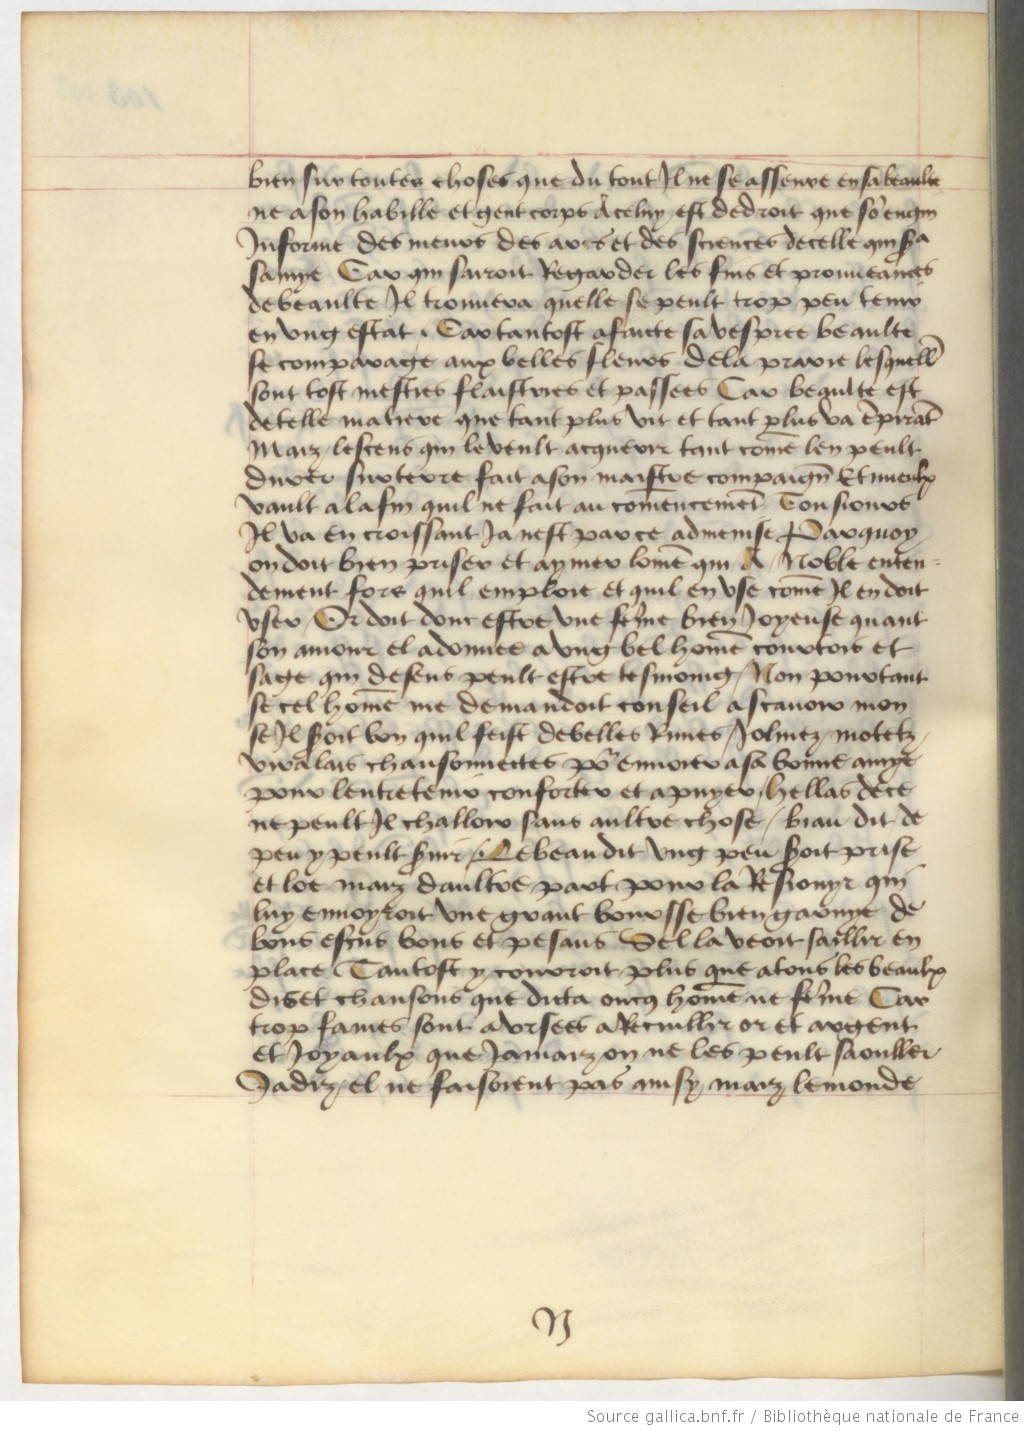 bien sur toutes choses que du tout Il ne se asseure en sa beaulte
ne a son habille et gent corps A celuy est de droit que so͂ engin
Informe des meurs des ars et des sciences de celle qui s͂a
samye Car qui sairoit Regarder les fins et prouueances
de beaulte Il trouuera quelle se peult trop peu tenir
en vng estat . Car tantost a faicte sa vespree beaulte
se comparage aux belles fleurs de la prarie lesquell͂
sont tost flaistries et passees Car beaulte est
de telle matiere que tant plus vit et tant plus va e͂pirāt
Maiz / le scens qui le veult acquerir tant com͂e len peult
durer sur terre fait a son maistre compaign͂ Et mieulx
vault a la fin quil ne fait au com͂encemēt Tousiours
Il va en croissant Ja nest par ce admenise Parquoy
on doit bien priser et aymer lom͂e qui A / Noble enten-
dement fors quil emploie et quil en vse com͂e Il en doit
vser / Or doit donc estre vne fēme bien Joyeuse quant
son amour el a donnee a vng bel hom͂e courtois et
sage qui de sens peult estre tesmoing / Non pourtant
se cel hom͂e me demandoit conseil a scauoir mon
se Il soit bon quil feist de belles Rimes / Jolinez / motetz /
viralais chansonnectes po͂ enuoier a sa bonne amye
pour lentretenir conforter et apuyer / hellas de ce
ne peult Il challoir sans aultre chose / biau dit de
peu y peult s͂uir / Le beau dit vng peu s͂oit prise
et loe maiz daultre part pour la Resiouyr qui
luy enuoyroit vne grant boursse bien garnye de
bons escus bons et pesans Sel la veoit saillir en
place Tantost y couroit plus que a tous les beaulx
dis et chansons que dicta oncq hom͂e ne fēme Car
trop fames sont aursees a Recuillir or et argent
et Joyaulx que Jamaiz on ne les peult saouller
Jadiz / el ne faisoient pas ainsy maiz le monde
Source gallica.bnf.fr / Bibliothèque nationale de France